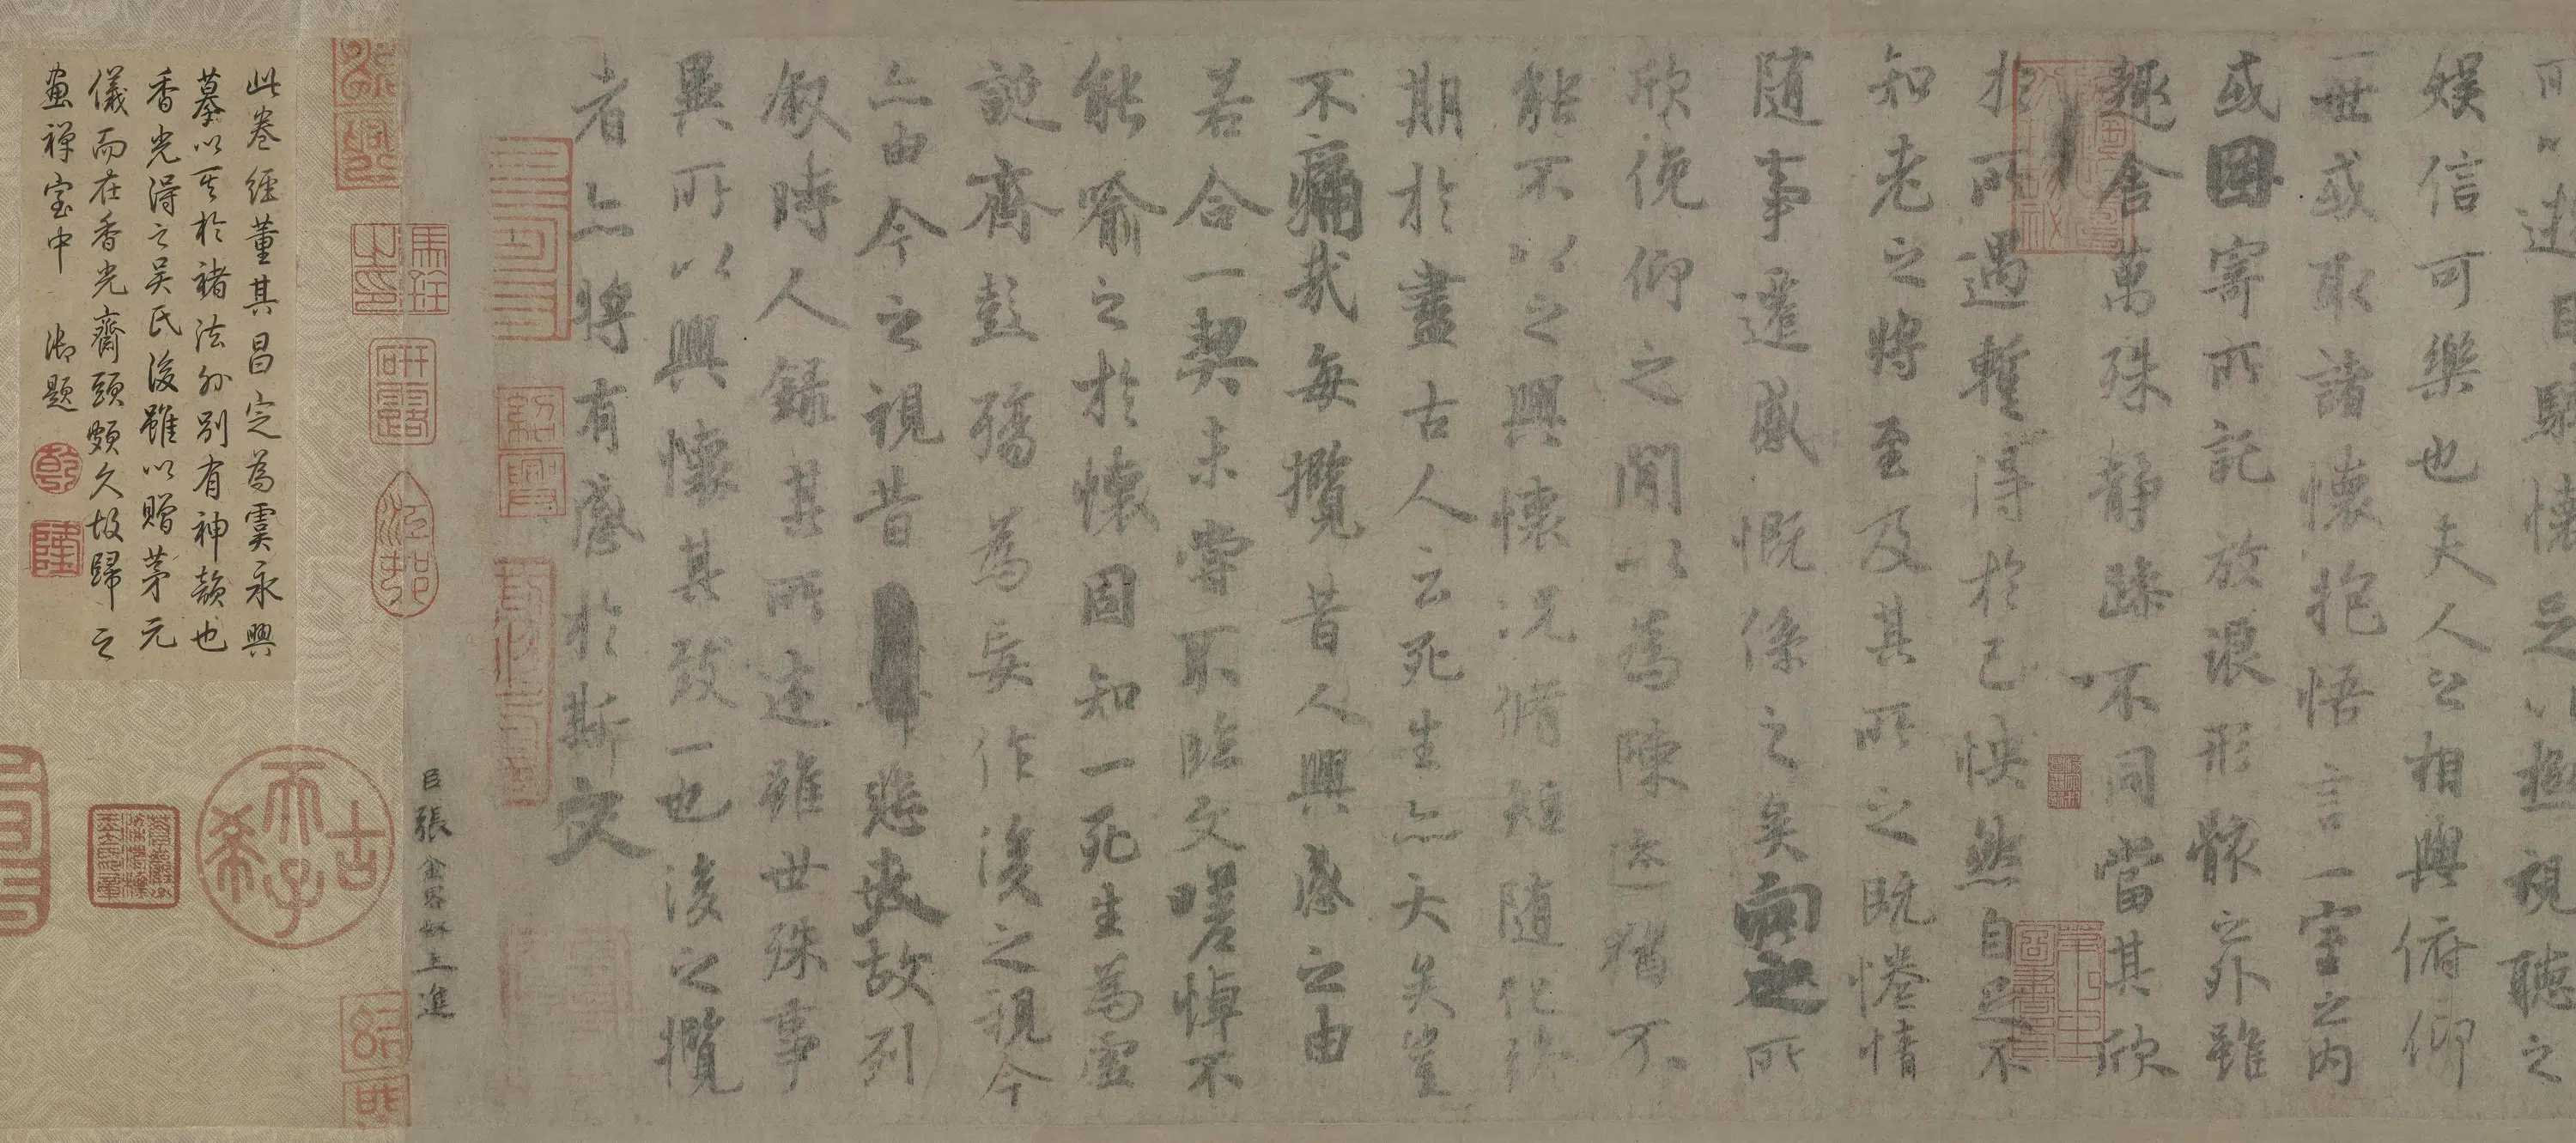 可以游目騁懷足以極視聽之
娛信可樂也夫人之相與俯仰
一世或取諸懷抱悟言一室之內
或因寄所託放浪形骸之外雖
趣舍萬殊靜躁不同當其欣
於所遇暫得於己怏然自足不
知老之將至及其所之既惓情
隨事遷感慨係之矣向之所
欣俛仰之閒以為陳迹猶不
能不以之興懷況脩短隨化終
期於盡古人云死生亦大矣豈
不痛哉每攬昔人興感之由
若合一契未嘗不臨文嗟悼不
能喻之於懷固知一死生為虛
誕齊彭殤為妄作後之視今
亦由今之視昔悲夫故列
叙時人錄其所述雖世殊事
異所以興懷其致一也後之攬
者亦將有感於斯文
臣張金界奴上進
此卷經董其昌定為虞永興
摹以其於褚法外別有神韻也
香光得之吳氏後雖以贈茅元
儀而在香光齋頭頗久故歸之
畫禪室中 御題
乾
隆
古
希
天
子